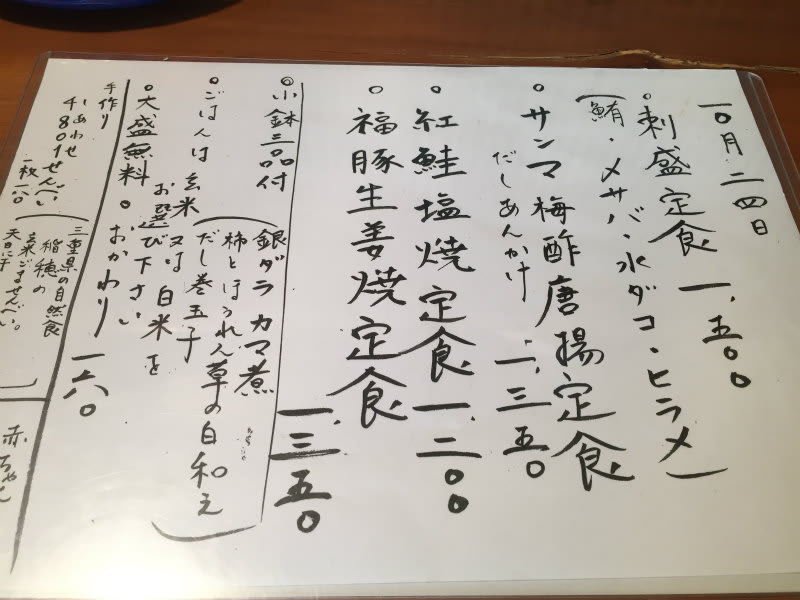 一〇月二四日
○刺盛定食 一、五〇〇
（鮪・〆サバ・水ダコ・ヒラメ）
○サンマ梅酢唐揚定食
だしあんかけ 一、三五〇
○紅鮭塩焼定食 一、二〇〇
○福豚生姜焼定食 一、三五〇
◎小鉢三品付
（銀ダラカマ煮
柿とほうれん草の白和え
だし巻玉子）
○ごはんは玄米又は白米を
お選び下さい
○大盛無料。おかわり一六〇
手作り
しあわせ
せんべい
一枚一八〇
（三重県の自然食
稲穂の
玄米ごませんべい。
天日に干
赤ちゃん